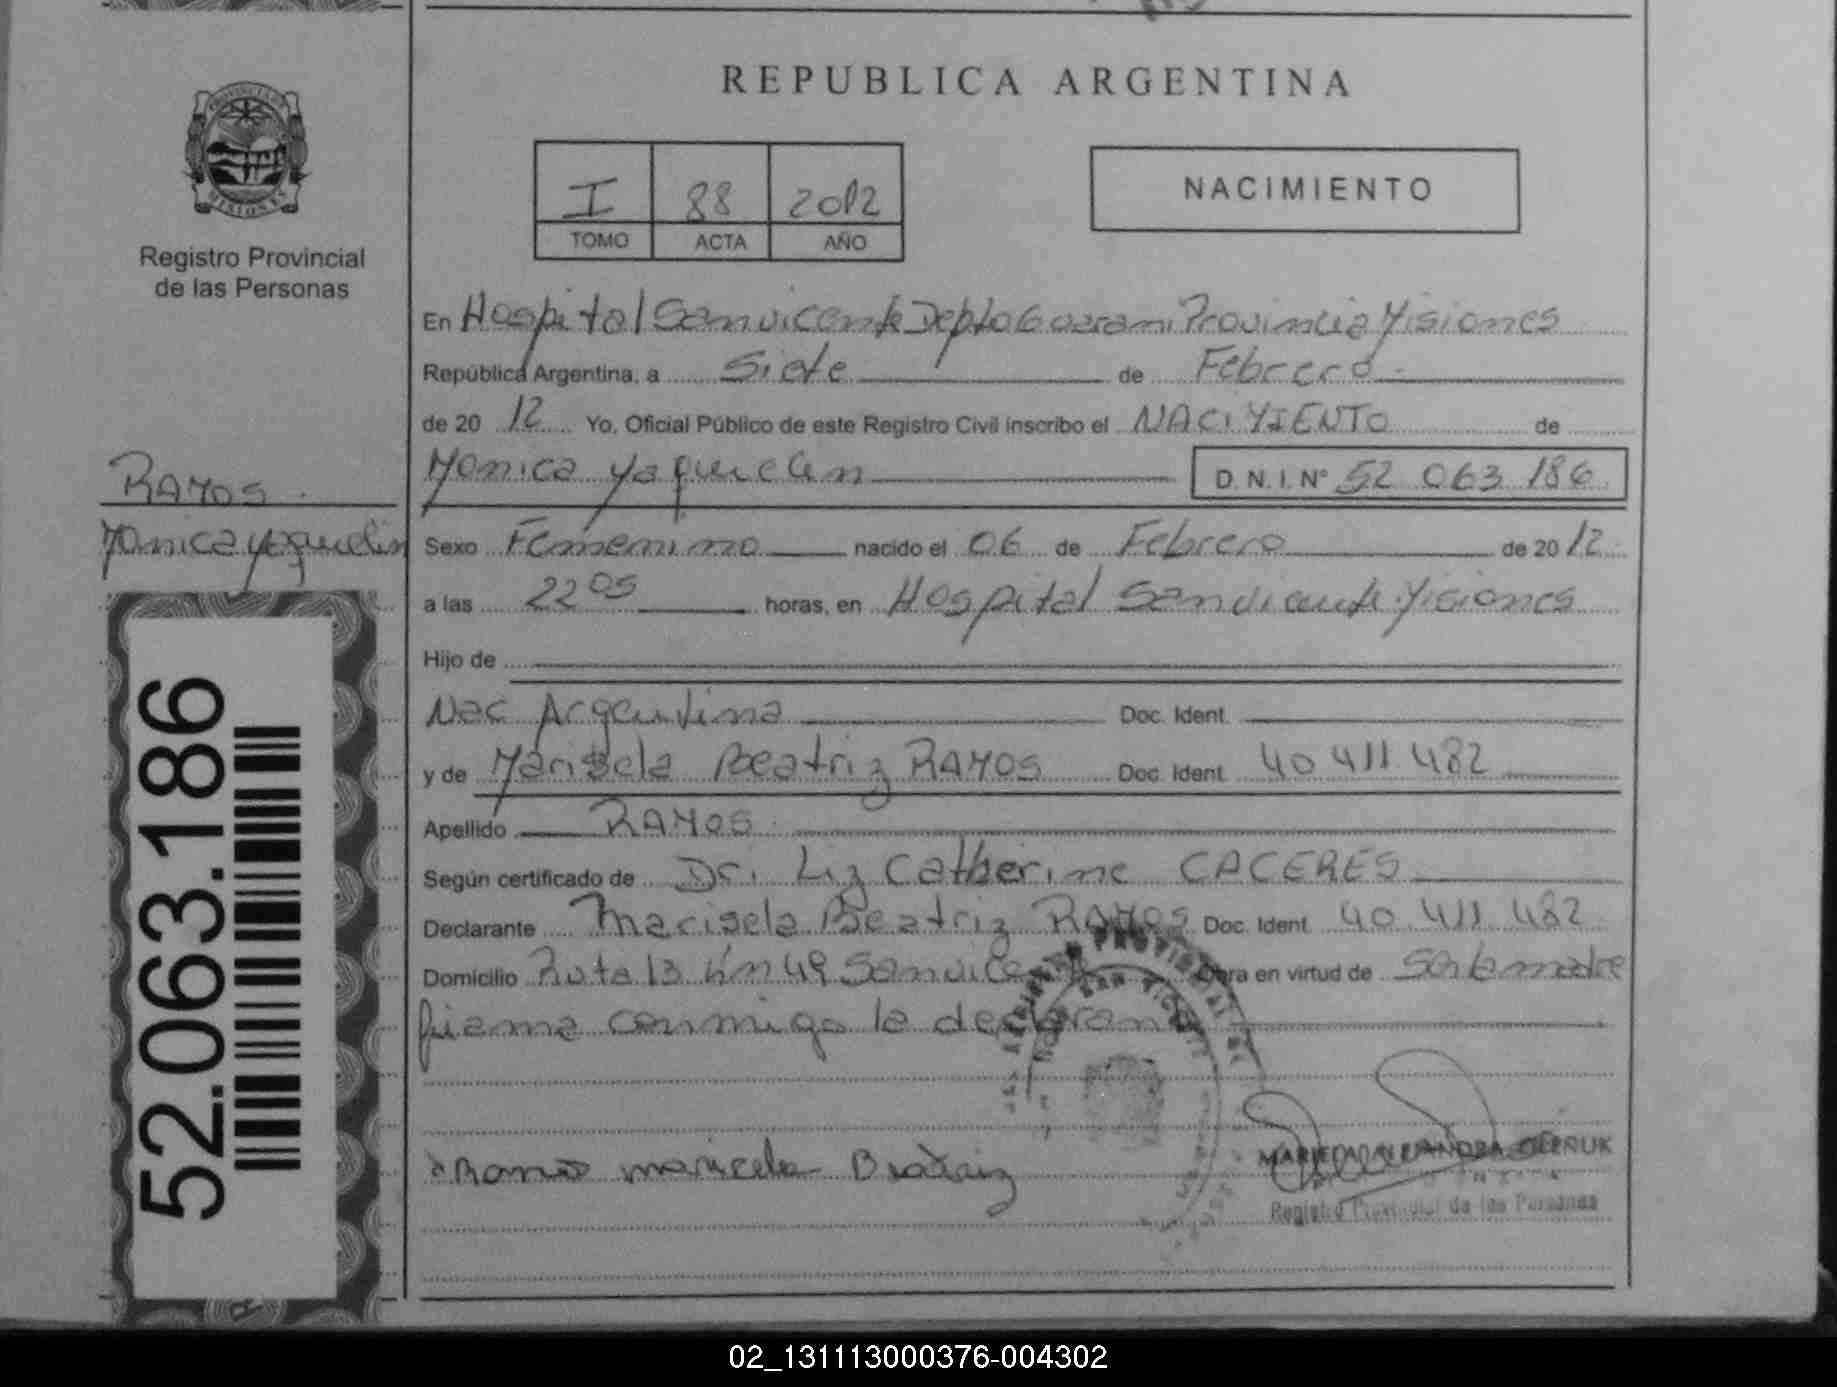 REPUBLICA ARGENTINA
PROVINCIA DE MISIONES
Registro Provincial
de las Personas
I 88 2012
TOMO ACTA AÑO
NACIMIENTO
En Hospital San vicente Depto Guarani Provincia Misiones
República Argentina, a Siete de Febrero
de 20 12 Yo, Oficial Público de este Registro Civil inscribo el NACIMIENTO de
Monica Yaquelin D.N.I. Nº 52 063 186
RAMOS
Monica Yaquelin
Sexo Femenino nacido el 06 de Febrero de 20 12
a las 22 05 horas, en Hospital San vicente Misiones
Hijo de
Nac Argentina Doc. Ident.
y de Marisela Beatriz RAMOS Doc. Ident. 40 411 482
Apellido RAMOS
Según certificado de Dr. Liz Catherine CACERES
Declarante Marisela Beatriz RAMOS Doc. Ident. 40 411 482
Domicilio Ruta 13 km 49 San Obra en virtud de Ser la madre
firma conmigo la
Ramos maricela Beatriz
Registro Provincial de las Personas
52.063.186
02_131113000376-004302